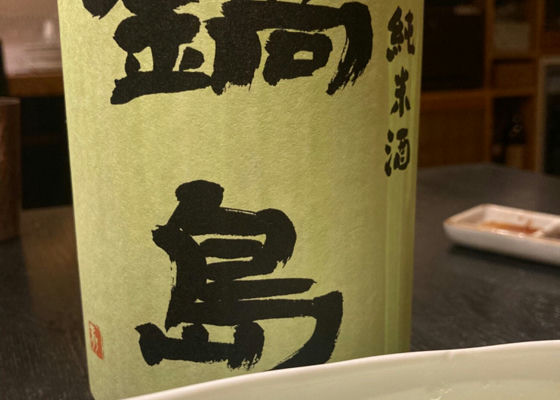 鍋島
純米酒